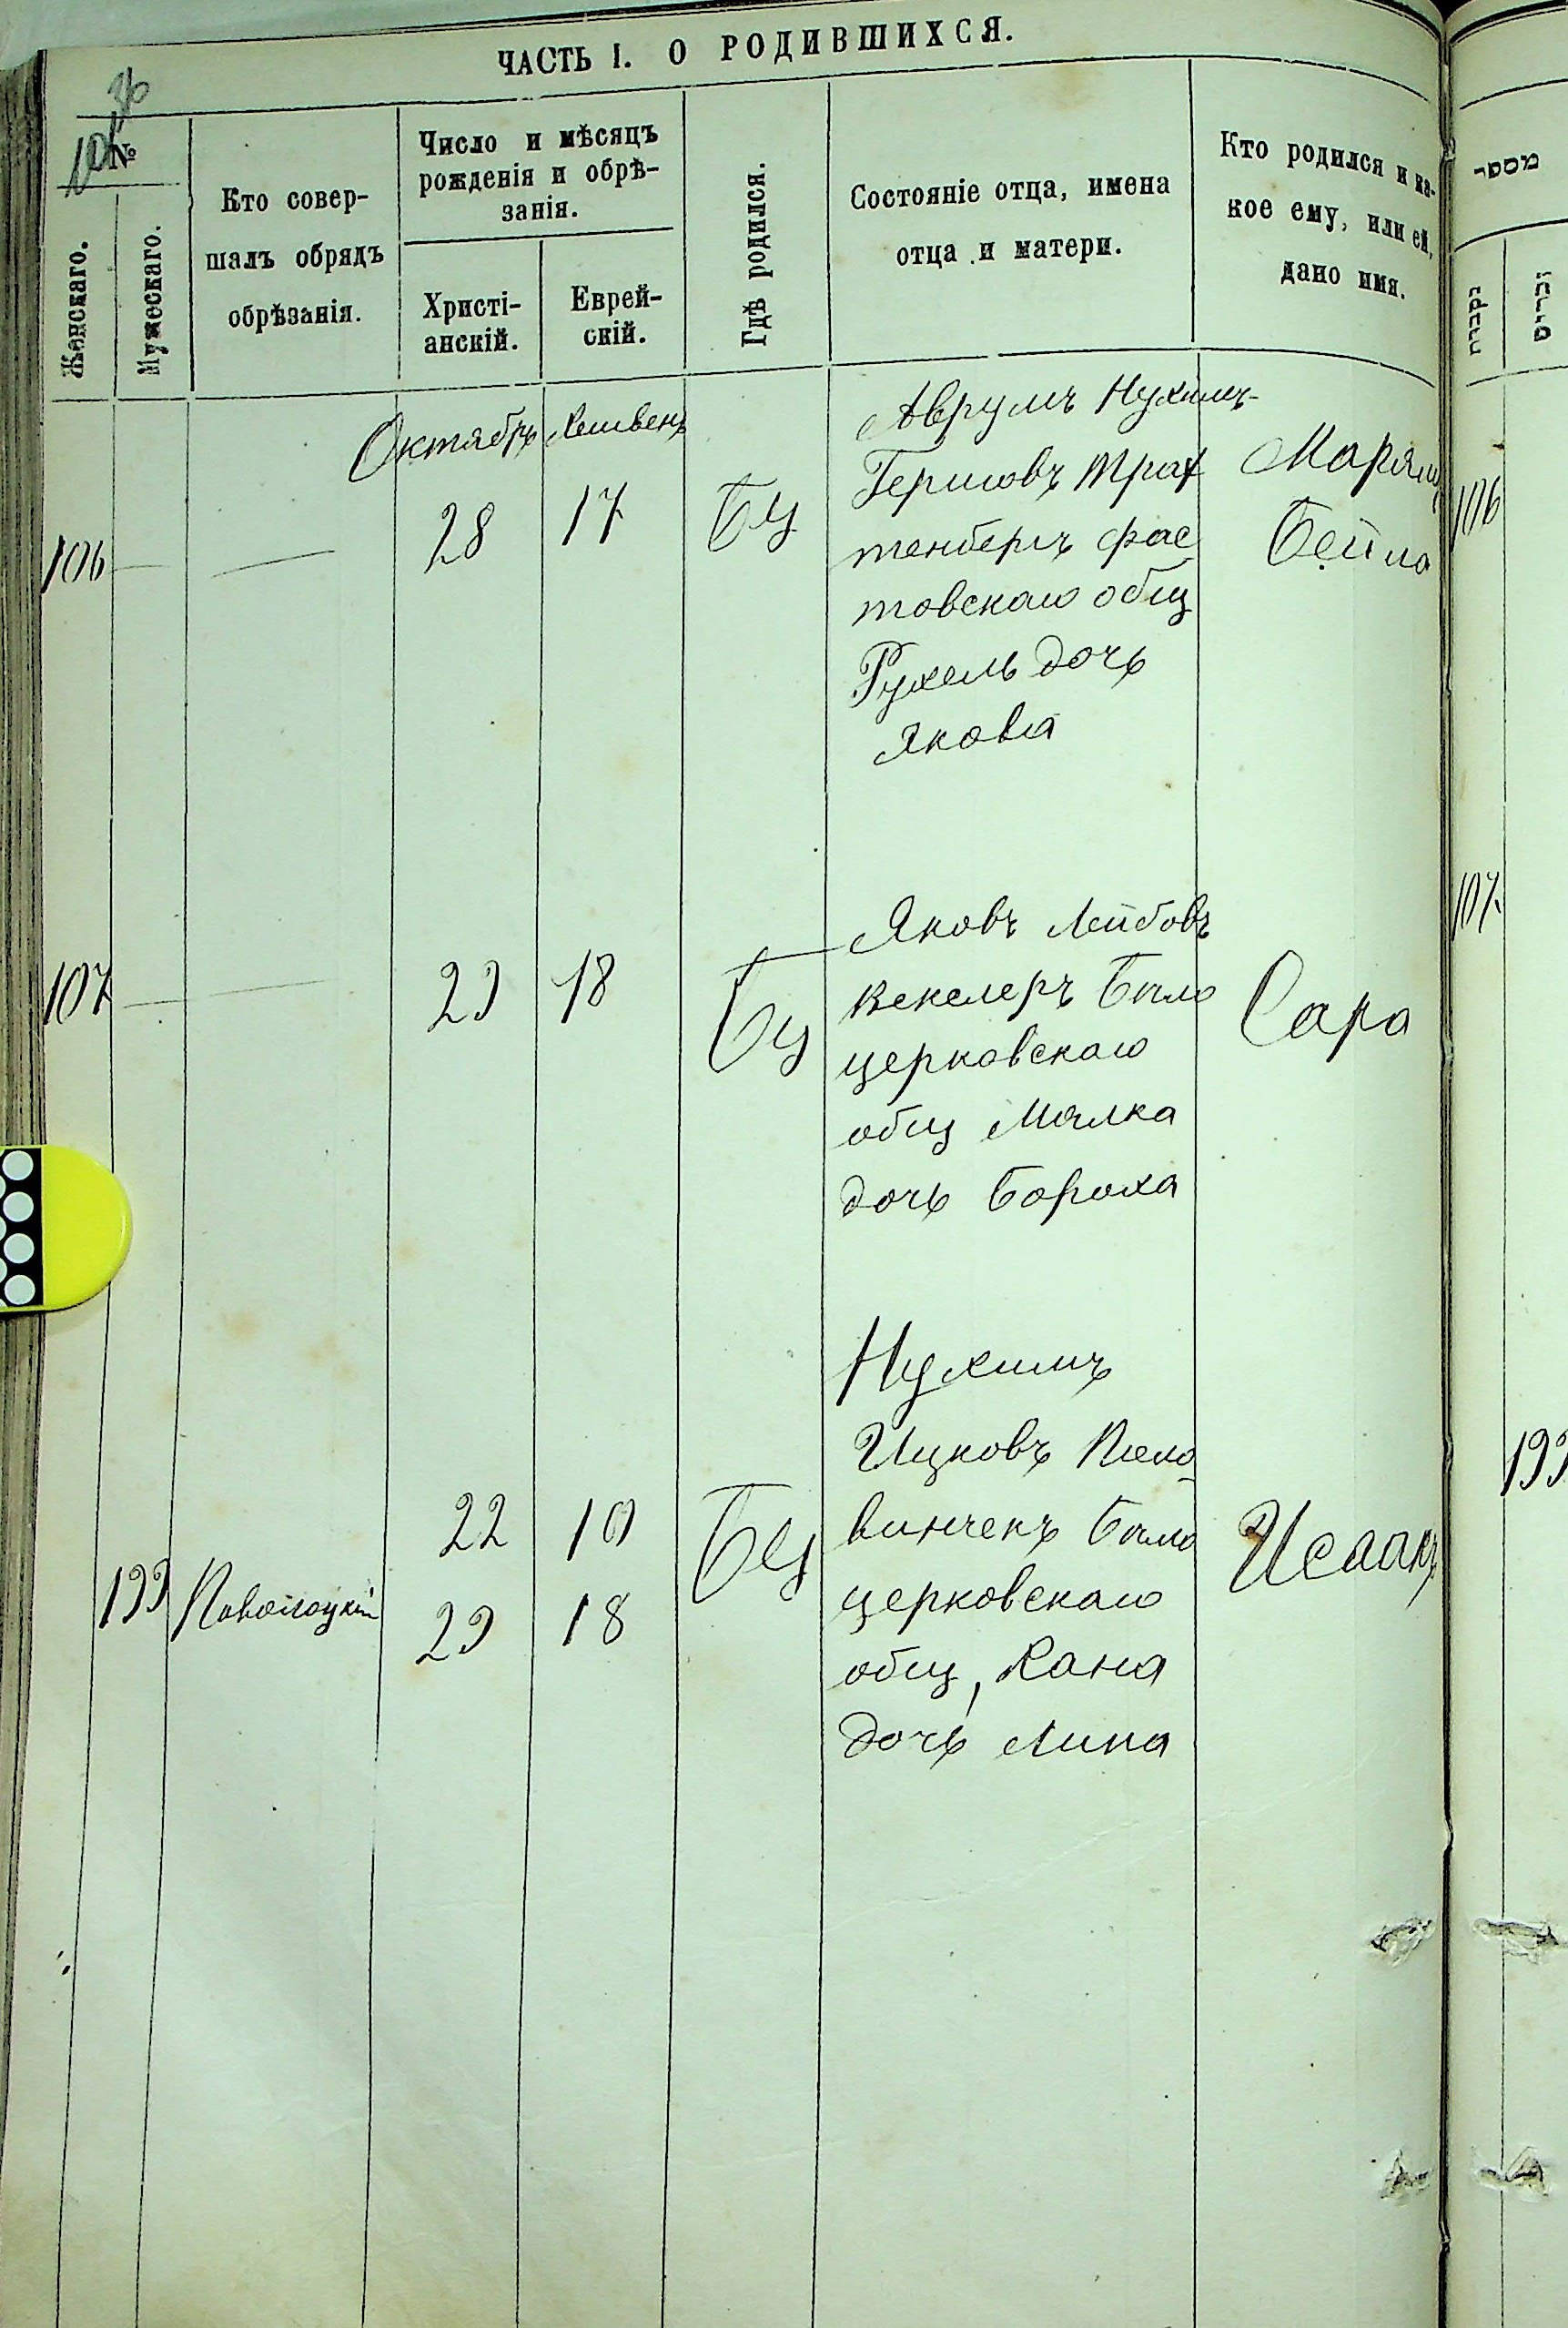 ЧАСТЬ I. О РОДИВШИХСЯ.
№
Женскаго.
Мужескаго.
Кто совер-
шалъ обрядъ
обрѣзанія.
Число и мѣсяцъ
рожденія и обрѣ-
занія.
Христі-
анскій.
Еврей-
скій.
Гдѣ родился.
Состояніе отца, имена
отца и матери.
Кто родился и ка-
кое ему, или ей,
дано имя.
מספר
נקבות
זכרים
Октябрь Хешвенъ
106 — — 28 17 БЦ
Аврумъ Нухимъ-
Гершовъ Трах
тенбергъ фас
товскаго общ
Рухель дочь
Якова
Марямъ
Бейла
106
107 — — 29 18 БЦ
Яковъ Лейбовъ
Векслеръ Бѣло
церковскаго
общ Малка
дочь Бороха
Сара
107
199 Паволоцкій
22 10
29 18
БЦ
Нухимъ
Ицковъ
винчекъ Бѣло
церковскаго
общ, Хана
дочь Липа
Исаакъ
199